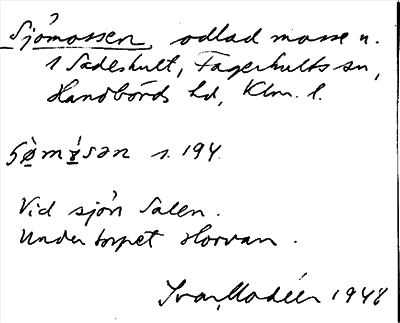 Sjömossen, odlad mosse n.
1 Sadeshult, Fagerhults sn,
Handbörds hd, Klm. l.
s. 194
Vid sjön Salen.
Under torpet Horvan.
Ivar Modéer 1948